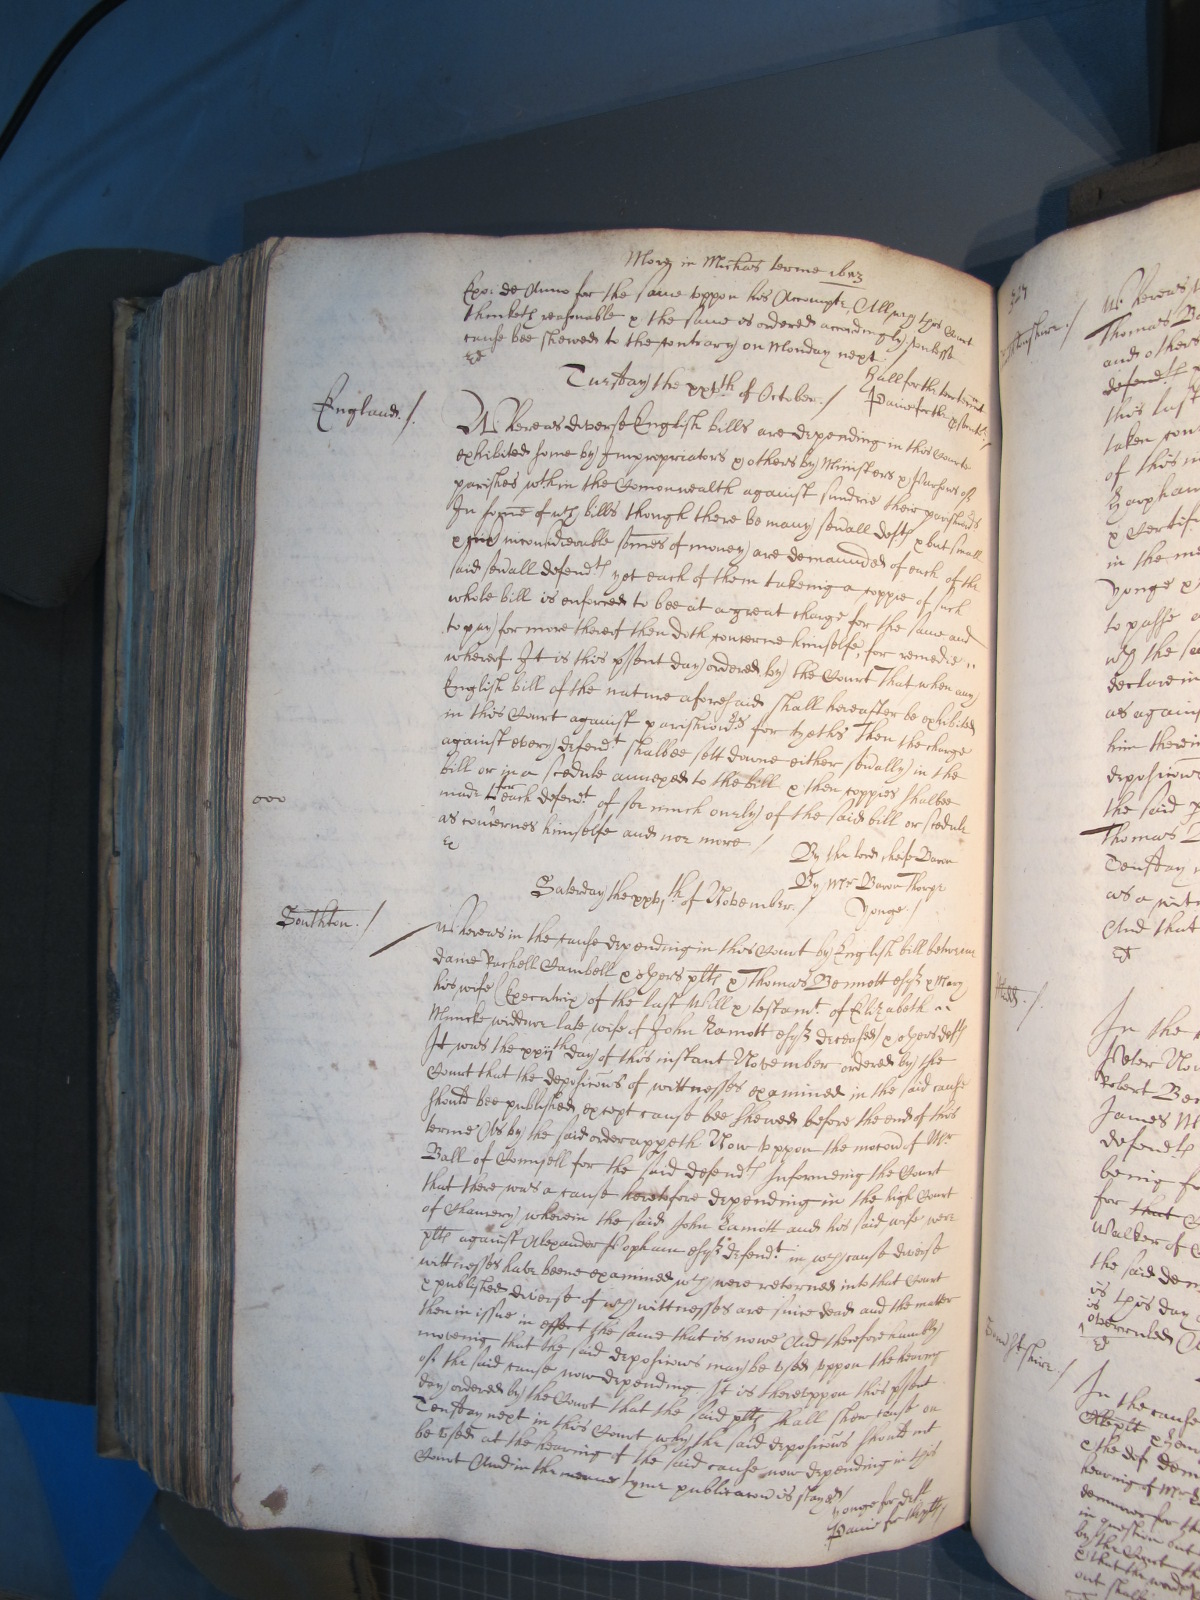 More in Michas terme 1653
Expo: de Anno for the same uppon his Accompte, All wch this Court
thinketh reasonable & the same is ordered accordingly unlesse
cause bee shewed to the contrary on Monday next
&c
Tuesday the xxvth of October /
England /
Whereas diverse English bills are depending in this Courte
exhibited some by Impropriators & others by Ministers & Parsons of
parishes wthin the Comonwealth against sundrie their parishiors
In some of wch bills though there be many sevall defts & but small
& inconsiderable somes of money are demaunded of each of the
said sevall defendts yet each of them takeing a coppie of such
whole bill is enforced to bee at a great charge for the same and
to pay for more thereof then doth concerne himselfe, for remedie
whereof It is this psent day ordered by the Court That when any
English bill of the nature aforesaid shall hereafter be exhibited
in this Court against parishiors for tyeths Then the charge
against every defendt shalbee sett downe either sevally in the
bill or in a scedule annexed to the bill & then coppies shalbee
made for each defendt of soe much onely of the said bill or scedule
as concernes himselfe and noe more /
&c
By the lord cheife Baron
By Mr Baron Thorpe
Saterday the xxvjth of November /
Yonge /
Southton /
Whereas in the cause depending in this Court by English bill betweene
dame Rachell Cambell & others plts & Thomas Bennett esqr & Mary
his wife Executrix of the last Will & testamt of Elizabeth
Muncke widdowe late wife of John esqr deceased & others defts
It was the xxijth day of this instant November ordered by the
Court that the deposicons of wittnesses examined in the said cause
should bee published except cause bee shewed before the end of this
terme As by the said order appeth Now uppon the mocon of Mr
Ball of Counsell for the said defendts Informeing the Court
that there was a cause heretofore depending in the high Court
of Chancery wherein the said John and his said wife were
plts against Alexander Popham esqr defendt in wch cause diverse
wittnesses have beene examined wch were returned into that Court
& published diverse of wch wittnesses are since dead and the matter
then in issue in effect the same that is nowe And therefore humbly
moveing that the said deposicons may be used uppon the hearing
of the said cause now depending It is thereuppon this psent
day ordered by the Court that the said plts shall shew cause on
Tuesday next in this Court why the said deposicons should not
be used at the hearing of the said cause now depending in this
Court And in the meane tyme publicacon is stayed /
Yonge for deft
for the plts /
Whereas
Thomas
and others
defendts
this last
taken
of this
& Certif
in the me
Yonge &
to passe
wch the
declare in
as against
him therein
deposicons
the said
Thomas
Tuesday
as a
And that
&c
In the
Peter
Robert
James
defendts
being
for that
Walker of
the said
is this day
is
overruled
&c
In the cause
& the def
hearing of
demurrer for
in question
by the Court
& that the
out shall